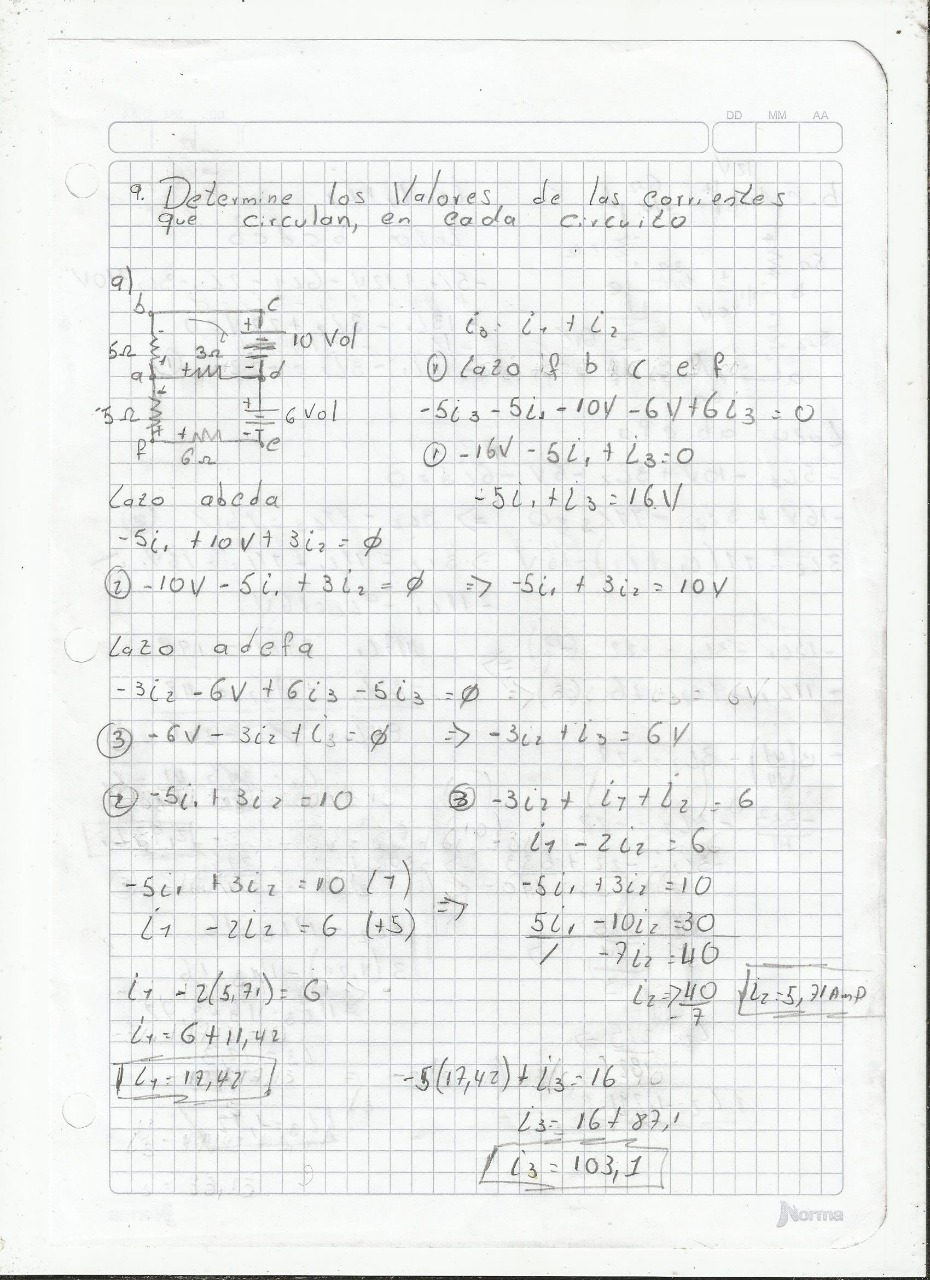 DD MM AA
9. Determine los Valores de las corrientes
que circulan, en cada circuito
a)
b c
+
10 Vol
5Ω 3Ω
a + - d
+
5Ω 6 Vol
f + - e
6Ω
i3 = i1 + i2
① Lazo f b c e f
-5i3 - 5i1 - 10V - 6V + 6i3 = 0
① -16V - 5i1 + i3 = 0
-5i1 + i3 = 16V
Lazo abcda
-5i1 + 10V + 3i2 = ϕ
② -10V - 5i1 + 3i2 = ϕ => -5i1 + 3i2 = 10V
Lazo adefa
-3i2 - 6V + 6i3 - 5i3 = ϕ
③ -6V - 3i2 + i3 = ϕ => -3i2 + i3 = 6V
② -5i1 + 3i2 = 10
③ -3i2 + i1 + i2 = 6
i1 - 2i2 = 6
-5i1 + 3i2 = 10 (1)
i1 - 2i2 = 6 (+5)
=>
-5i1 + 3i2 = 10
5i1 - 10i2 = 30
/ -7i2 = 40
i2 => 40
-7
i2 = 5,71 Amp
i1 - 2(5,71) = 6
i1 = 6 + 11,42
i1 = 17,42
-5(17,42) + i3 = 16
i3 = 16 + 87,1
i3 = 103,1
Norma